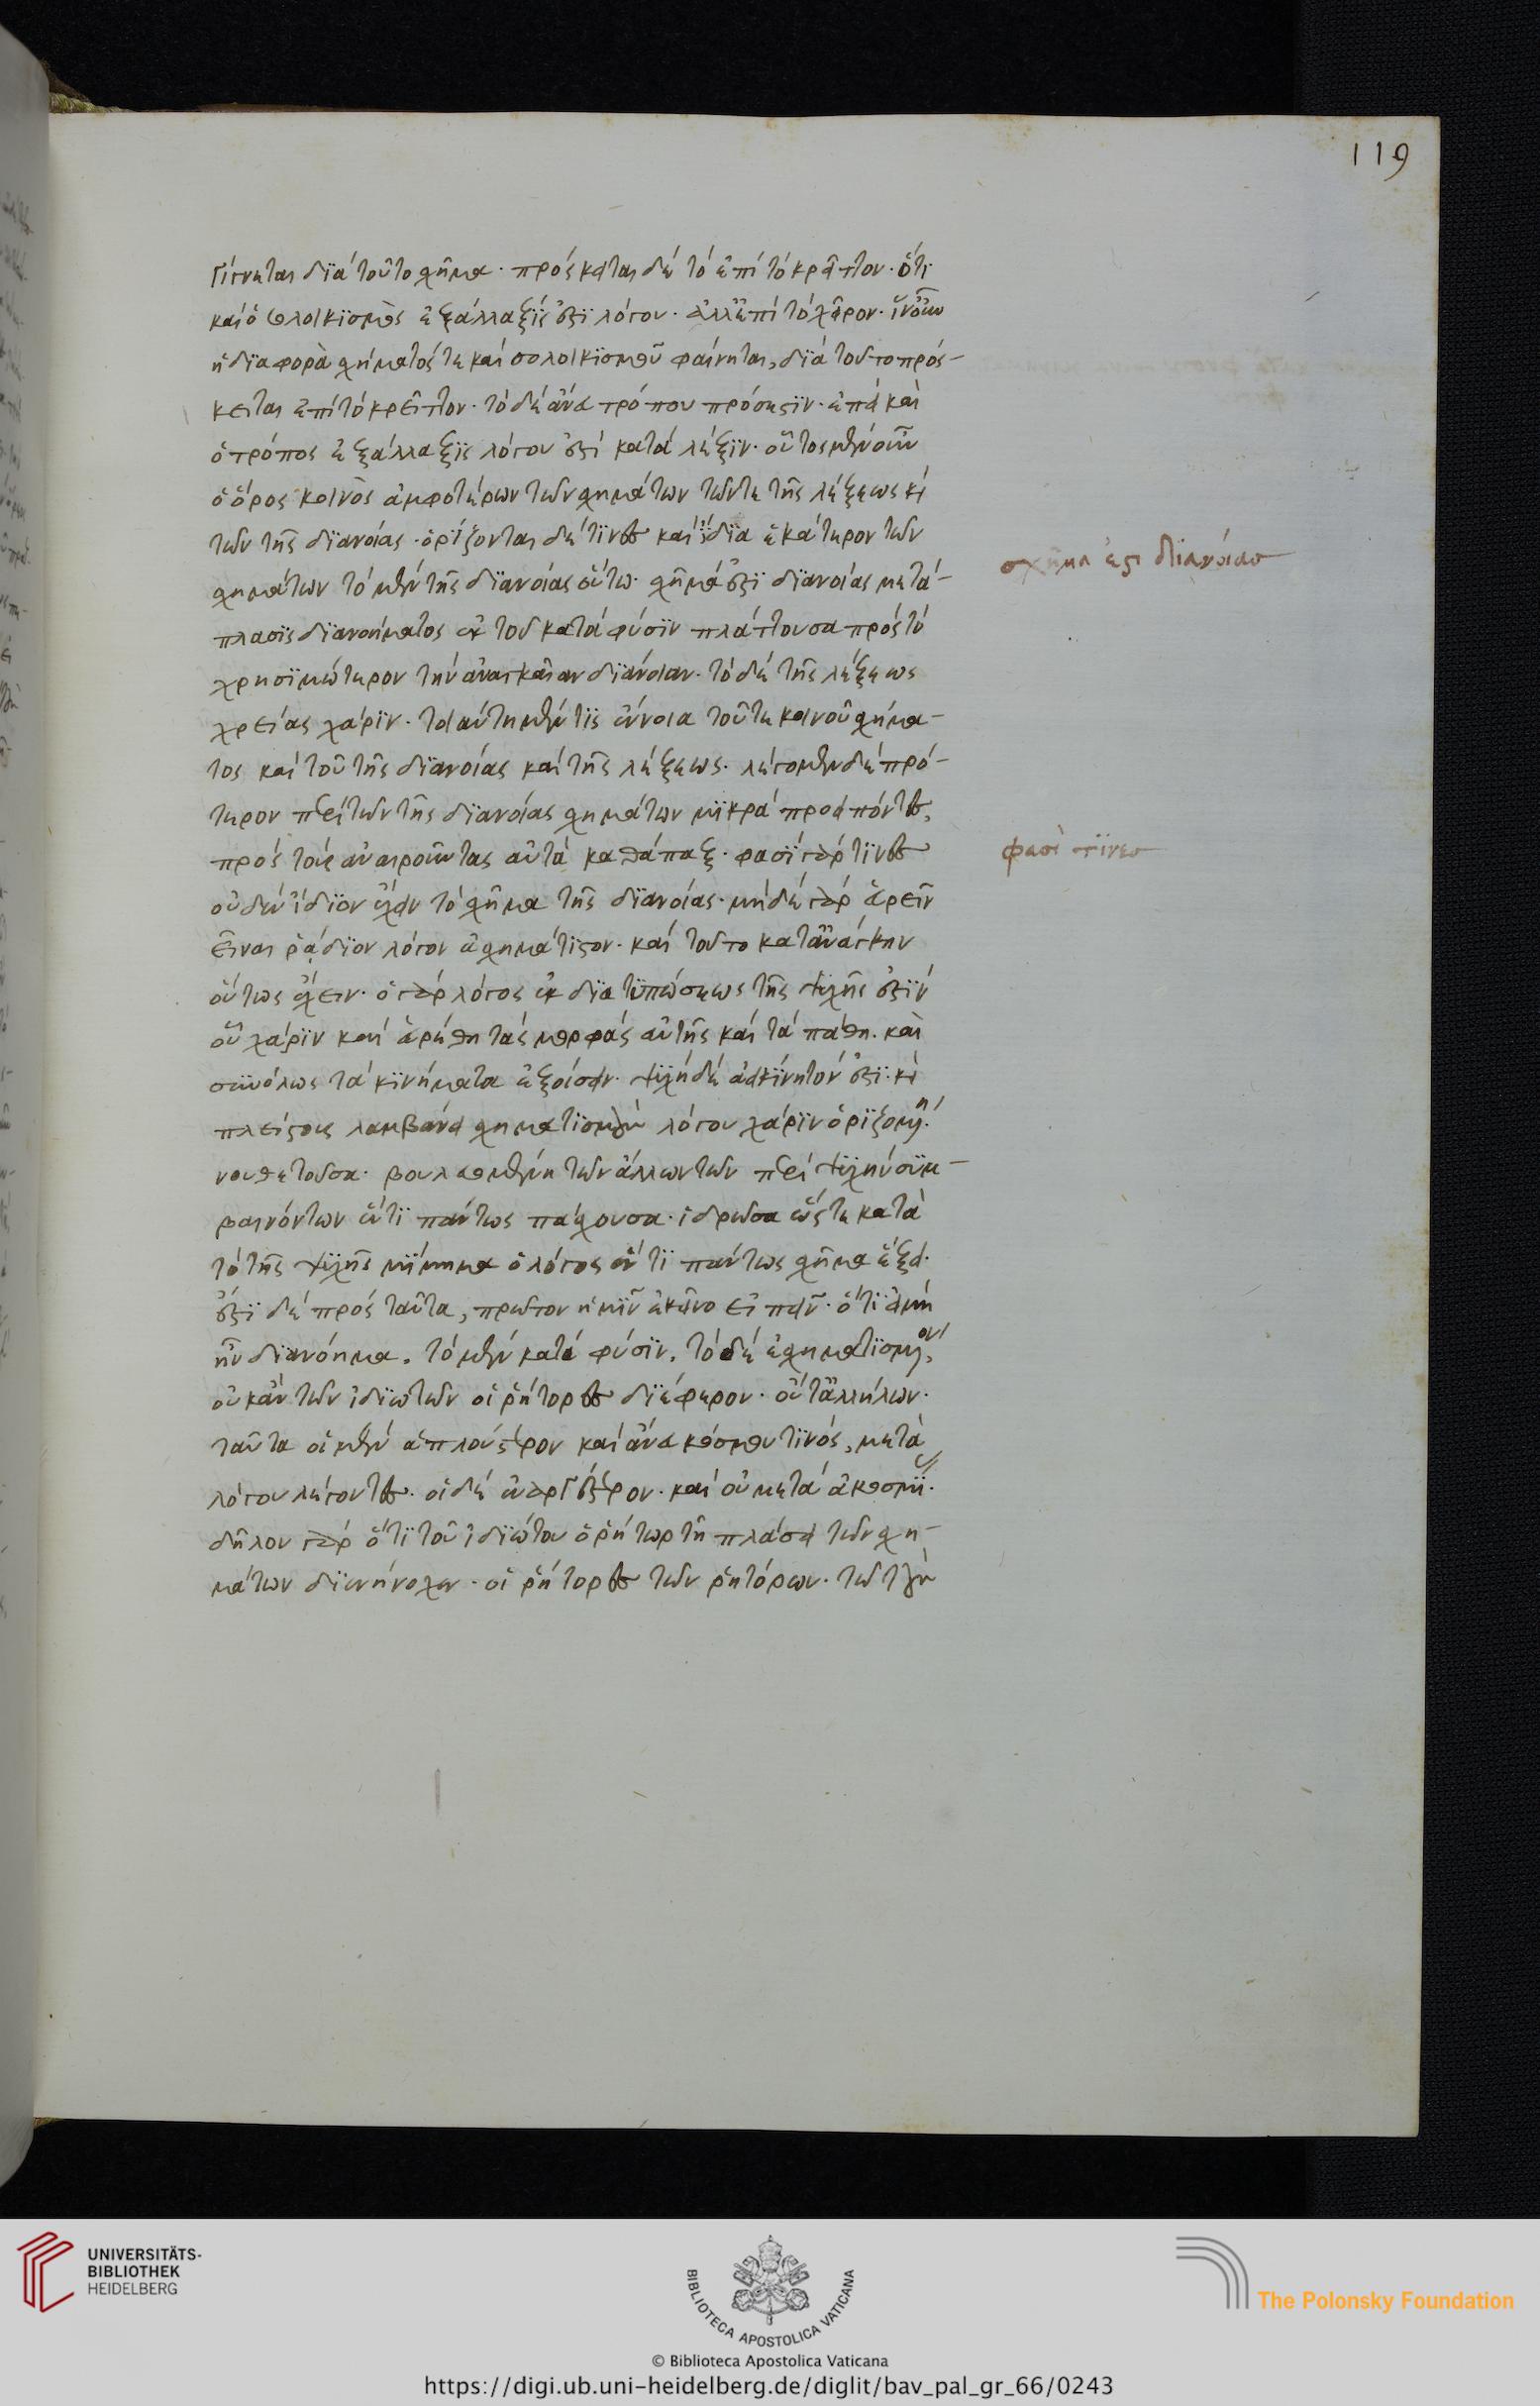 119
γίγνεται διὰ τοῦτο σχῆμα· πρόσκειται δὲ τὸ ἐπὶ τὸ κρεῖττον· ὅτι
καὶ ὁ σολοικισμὸς ἐξάλλαξίς ἐστι λόγου· ἀλλ' ἐπὶ τὸ χεῖρον· ἵν' οὖν
ἡ διαφορὰ σχήματός τε καὶ σολοικισμοῦ φαίνηται, διὰ τοῦτο πρόσ-
κειται ἐπὶ τὸ κρεῖττον· τὸ δὲ ἄνευ τρόπου πρόσεστιν· ἐπεὶ καὶ
ὁ τρόπος ἐξάλλαξις λόγου ἐστὶ κατὰ λέξιν· οὗτος μὲν οὖν
ὁ ὅρος κοινὸς ἀμφοτέρων τῶν σχημάτων τῶν τε τῆς λέξεως καὶ
τῶν τῆς διανοίας· ὁρίζονται δέ τινες καὶ ἰδία ἑκάτερον τῶν
σχημάτων τὸ μὲν τῆς διανοίας οὕτω· σχῆμά ἐστι διανοίας μετά-
πλασις διανοήματος ἐκ τοῦ κατὰ φύσιν πλάττουσα πρὸς τὸ
χρησιμώτερον τὴν ἀναγκαίαν διάνοιαν· τὸ δὲ τῆς λέξεως
χρείας χάριν· τοιαύτη μέν τις ἔννοια τοῦ τε κοινοῦ σχήμα-
τος καὶ τοῦ τῆς διανοίας καὶ τῆς λέξεως· λέγομεν δὲ πρό-
τερον περὶ τῶν τῆς διανοίας σχημάτων μικρὰ προειπόντες,
πρὸς τοὺς ἀναιροῦντας αὐτὰ καθάπαξ· φασὶ γάρ τινες
οὐδὲν ἴδιον ἔχειν τὸ σχῆμα τῆς διανοίας· μηδὲ γὰρ εὑρεῖν
εἶναι ῥᾴδιον λόγον ἀσχημάτιστον· καὶ τοῦτο κατ' ἀνάγκην
οὕτως ἔχειν· ὁ γὰρ λόγος ἐκ διατυπώσεως τῆς ψυχῆς ἐστιν
οὗ χάριν καὶ εὑρέθη τὰς μορφὰς αὐτῆς καὶ τὰ πάθη· καὶ
συνόλως τὰ κινήματα ἐξοίσειν· ψυχὴ δὲ ἀεικίνητόν ἐστι· καὶ
πλείστους λαμβάνει σχηματισμοὺς λόγου χάριν ὁριζομένη·
νουθετοῦσα· βουλευομένη τῶν ἄλλων τῶν περὶ ψυχὴν συμ-
βαινόντων ἕν τι πάντως πάσχουσα· ἱδρῶσα ὥστε κατὰ
τὸ τῆς ψυχῆς μίμημα ὁ λόγος ἕν τι πάντως σχῆμα ἕξει·
ἔστι δὲ πρὸς ταῦτα, πρῶτον ἡμῖν ἐκεῖνο εἰπεῖν· ὅτι εἰ μὴ
ἦν διανόημα, τὸ μὲν κατὰ φύσιν, τὸ δὲ ἐσχηματισμένον,
οὐκ ἂν τῶν ἰδιωτῶν οἱ ῥήτορες διέφερον· οὔτ' ἀλλήλων·
ταῦτα οἱ μὲν ἁπλούστερον καὶ ἄνευ κόσμου τινός, μετὰ
λόγου λέγοντες· οἱ δὲ ἐναργέστερον· καὶ οὐ μετὰ ἀκοσμίας·
δῆλον γὰρ ὅτι τοῦ ἰδιώτου ὁ ῥήτωρ τῇ πλάσει τῶν σχη-
μάτων διενήνοχεν· οἱ ῥήτορες τῶν ῥητόρων· τῷ τὴν
σχῆμά ἐστι διανοίας
φασί τινες
UNIVERSITÄTS-
BIBLIOTHEK
HEIDELBERG
BIBLIOTECA APOSTOLICA VATICANA
The Polonsky Foundation
© Biblioteca Apostolica Vaticana
https://digi.ub.uni-heidelberg.de/diglit/bav_pal_gr_66/0243